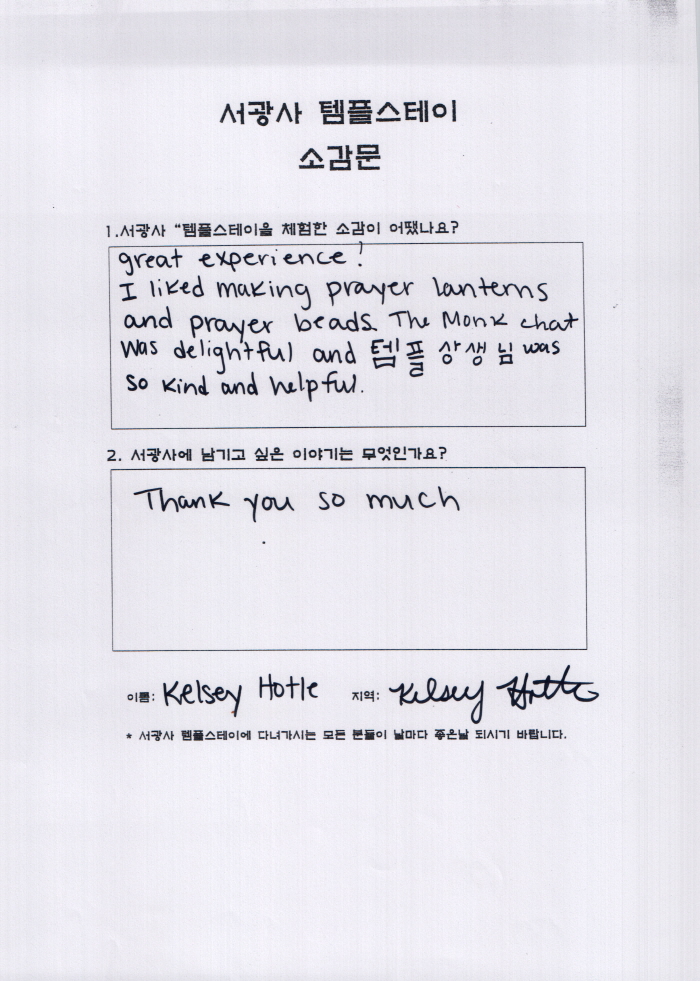 서광사 템플스테이
소감문
1.서광사 “템플스테이을 체험한 소감이 어땠나요?
great experience!
I liked making prayer lanterns
and prayer beads. The Monk chat
was delightful and 템플 상생님 was
so kind and helpful.
2. 서광사에 남기고 싶은 이야기는 무엇인가요?
Thank you so much
이름: Kelsey Hotle 지역: Kelsey Hotle
* 서광사 템플스테이에 다녀가시는 모든 분들이 날마다 좋은날 되시기 바랍니다.